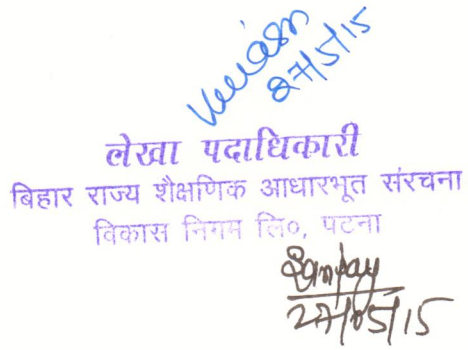 27/5/15
लेखा पदाधिकारी
बिहार राज्य शैक्षणिक आधारभूत संरचना
विकास निगम लि०, पटना
Sanjay
27/05/15